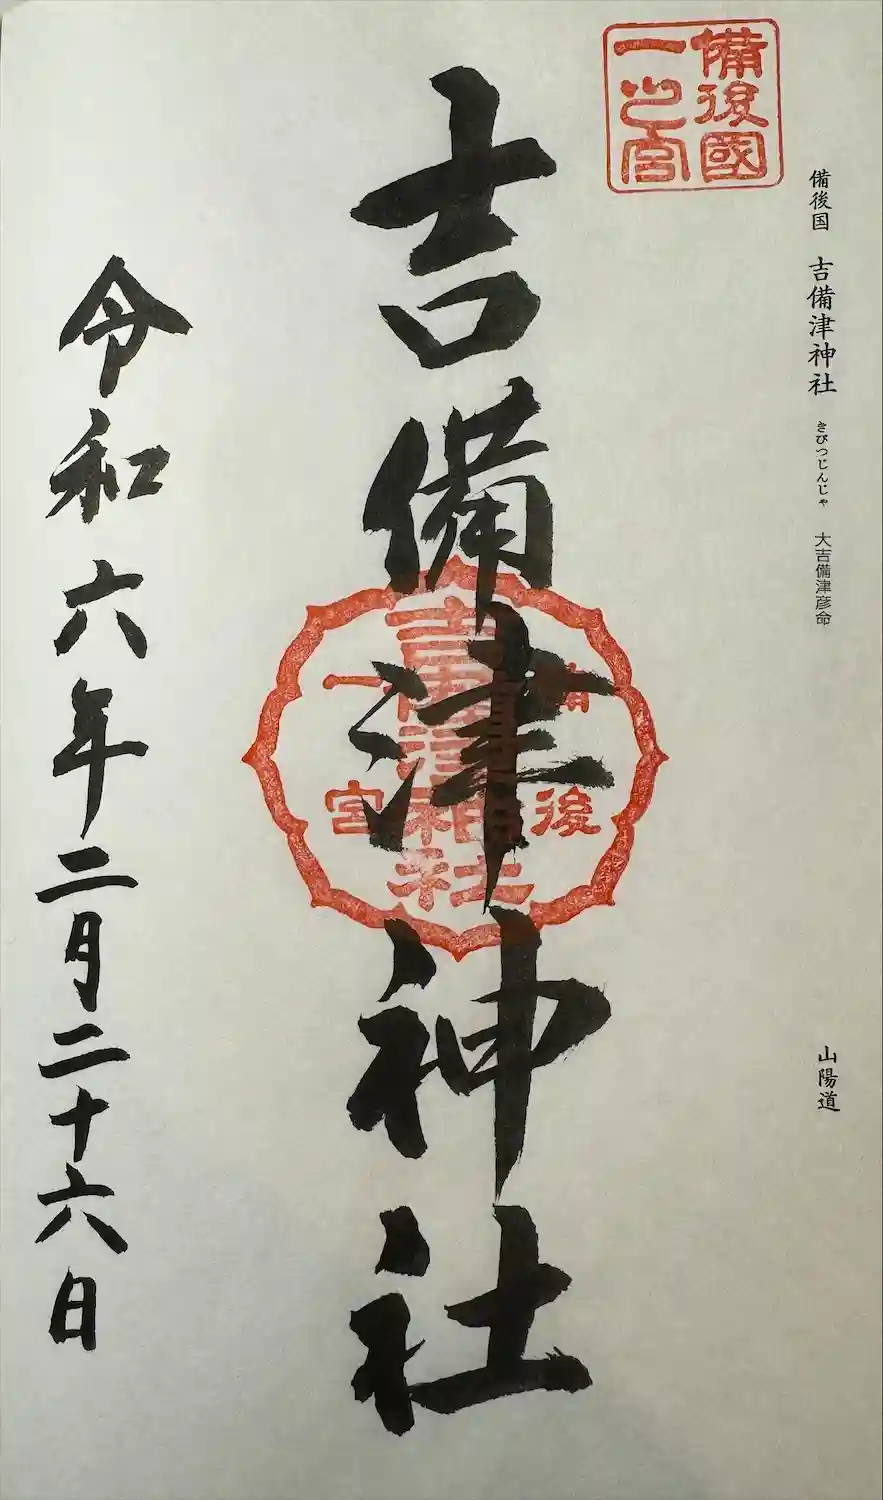 備後國
一之宮
備後国 吉備津神社 きびつじんじゃ 大吉備津彦命
山陽道
吉備津神社
備後
吉備津神社
一宮
令和六年二月二十六日